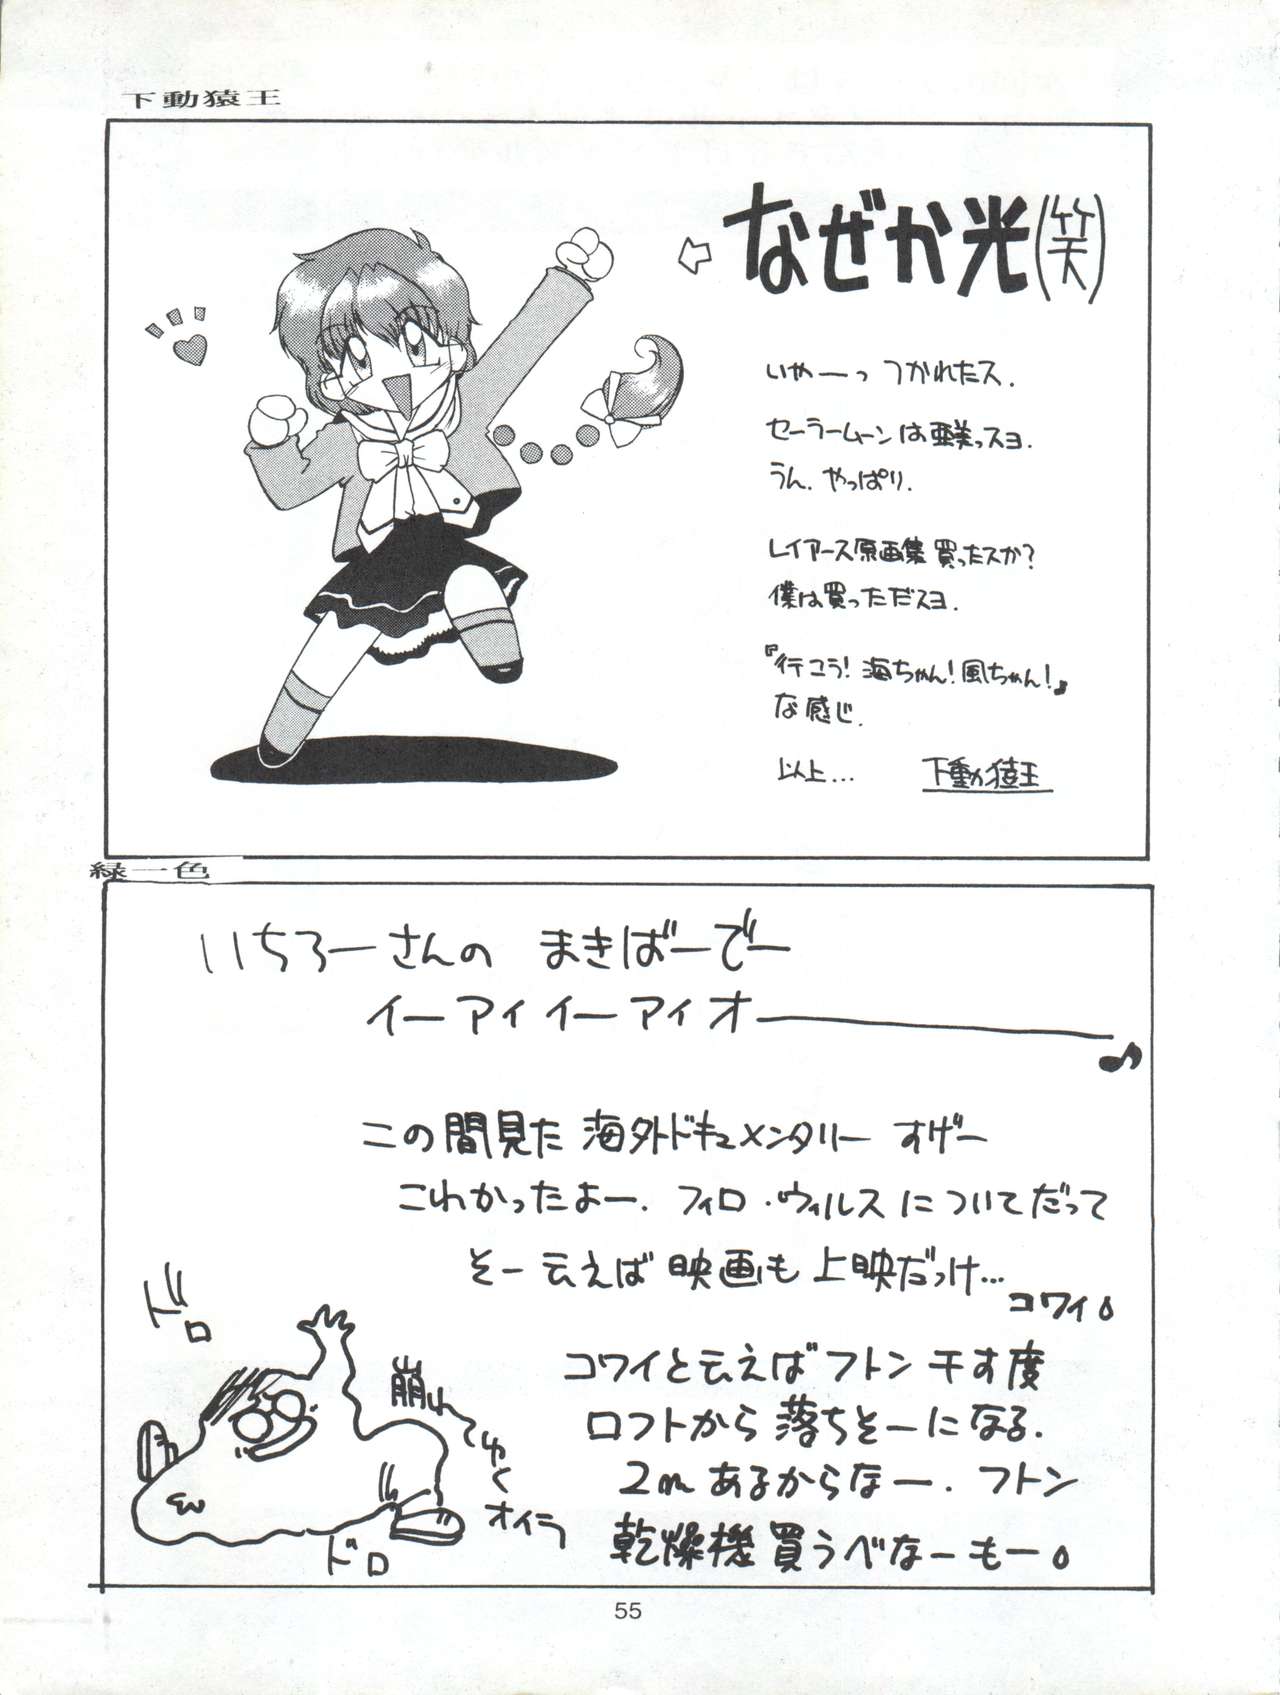 下動猿王
なぜか光(笑)
いやーっ つかれたス.
セーラームーンは亜美っスヨ.
うん.やっぱり.
レイアース原画集 買ったスか?
僕は買っただスヨ.
『行こう! 海ちゃん! 風ちゃん!』
な感じ.
以上... 下動猿王
緑一色
いちろーさんの まきばーでー
イーアイイーアイオー♪
この間見た 海外ドキュメンタリー すげー
こわかったよー. フィロ・ウィルスについてだって
そー云えば 映画も 上映だっけ...
コワイ。
コワイと云えば フトン 干す度
ロフトから 落ちそーになる.
2mあるからなー. フトン
乾燥機 買うべなーもー。
ドロ
崩れてゆくオイラ
ドロ
55